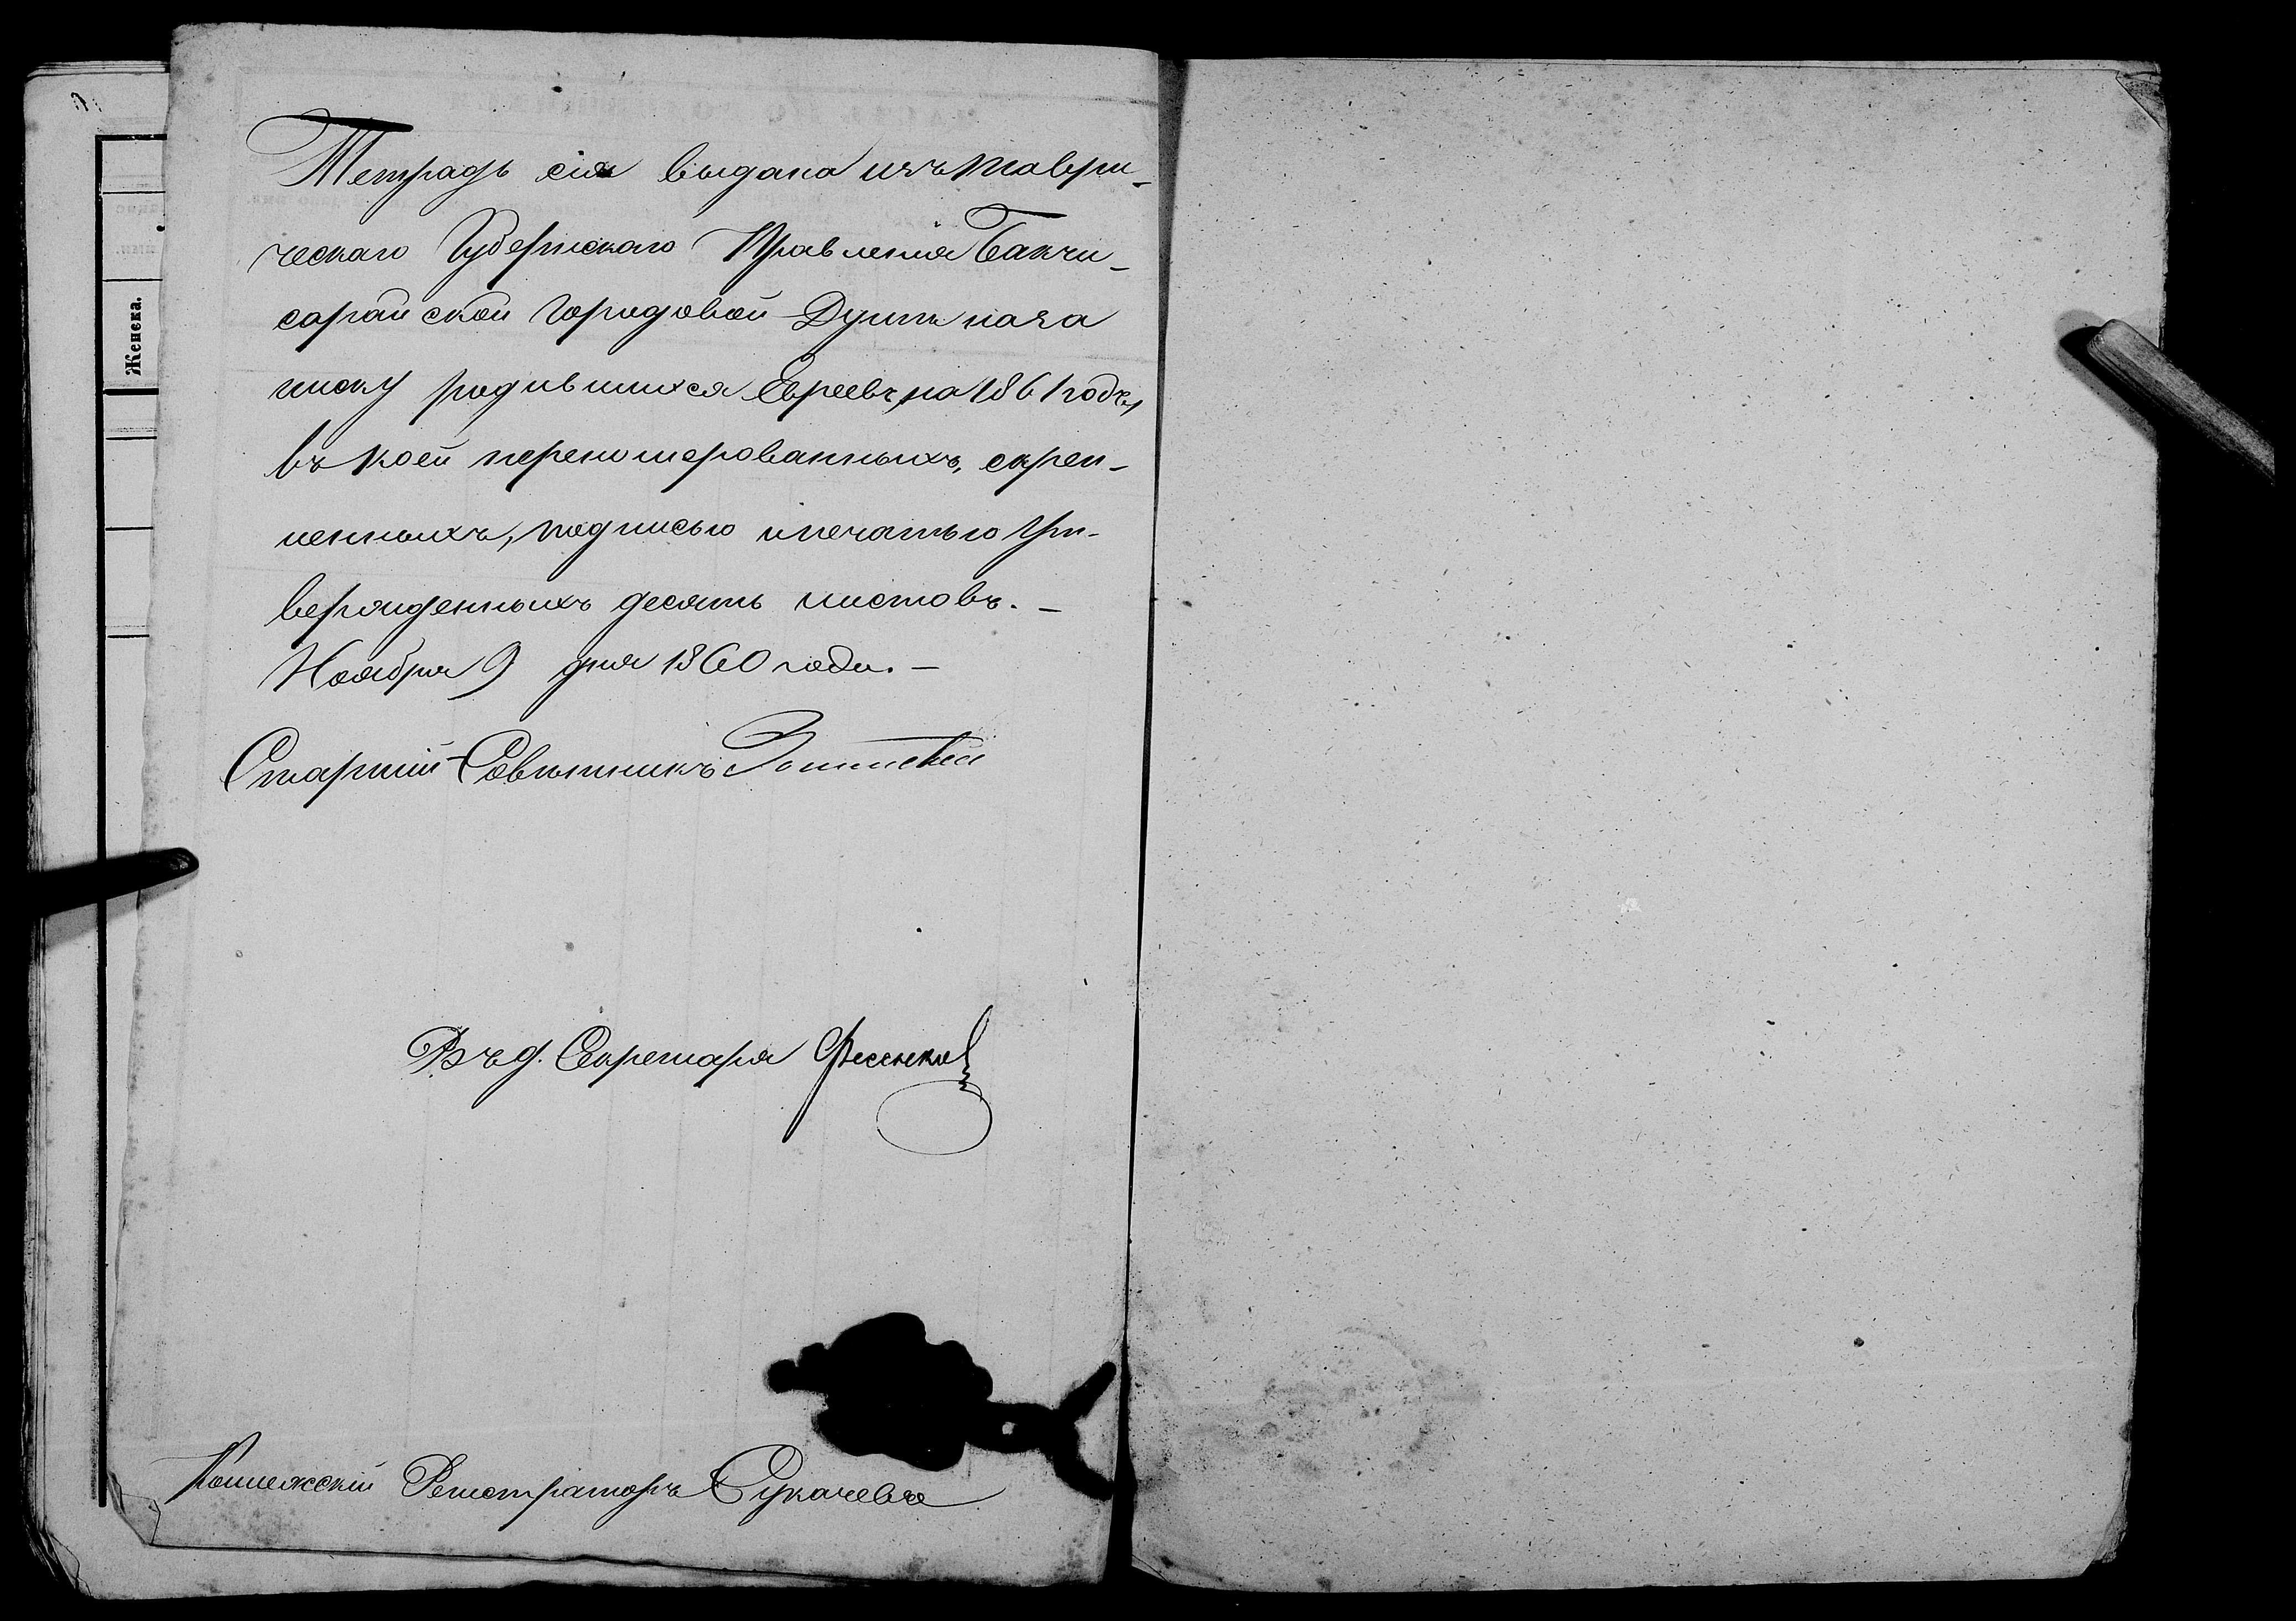 Женска.
Тетрадь сія выдана изъ Таври-
ческаго Губернскаго Правленія Бакчи-
сарайской городовой Думы на за
писку родившихся Евреевъ, на 1861 годъ,
въ коей переномерованныхъ, скреп-
ленныхъ, подписью и печатью ут-
вержденныхъ десять листовъ. –
Ноября 9 дня 1860 года. –
Старший Совѣтникъ
Въ д. Секретаря Фесенков
Коллежский Регистраторъ Сукачевъ